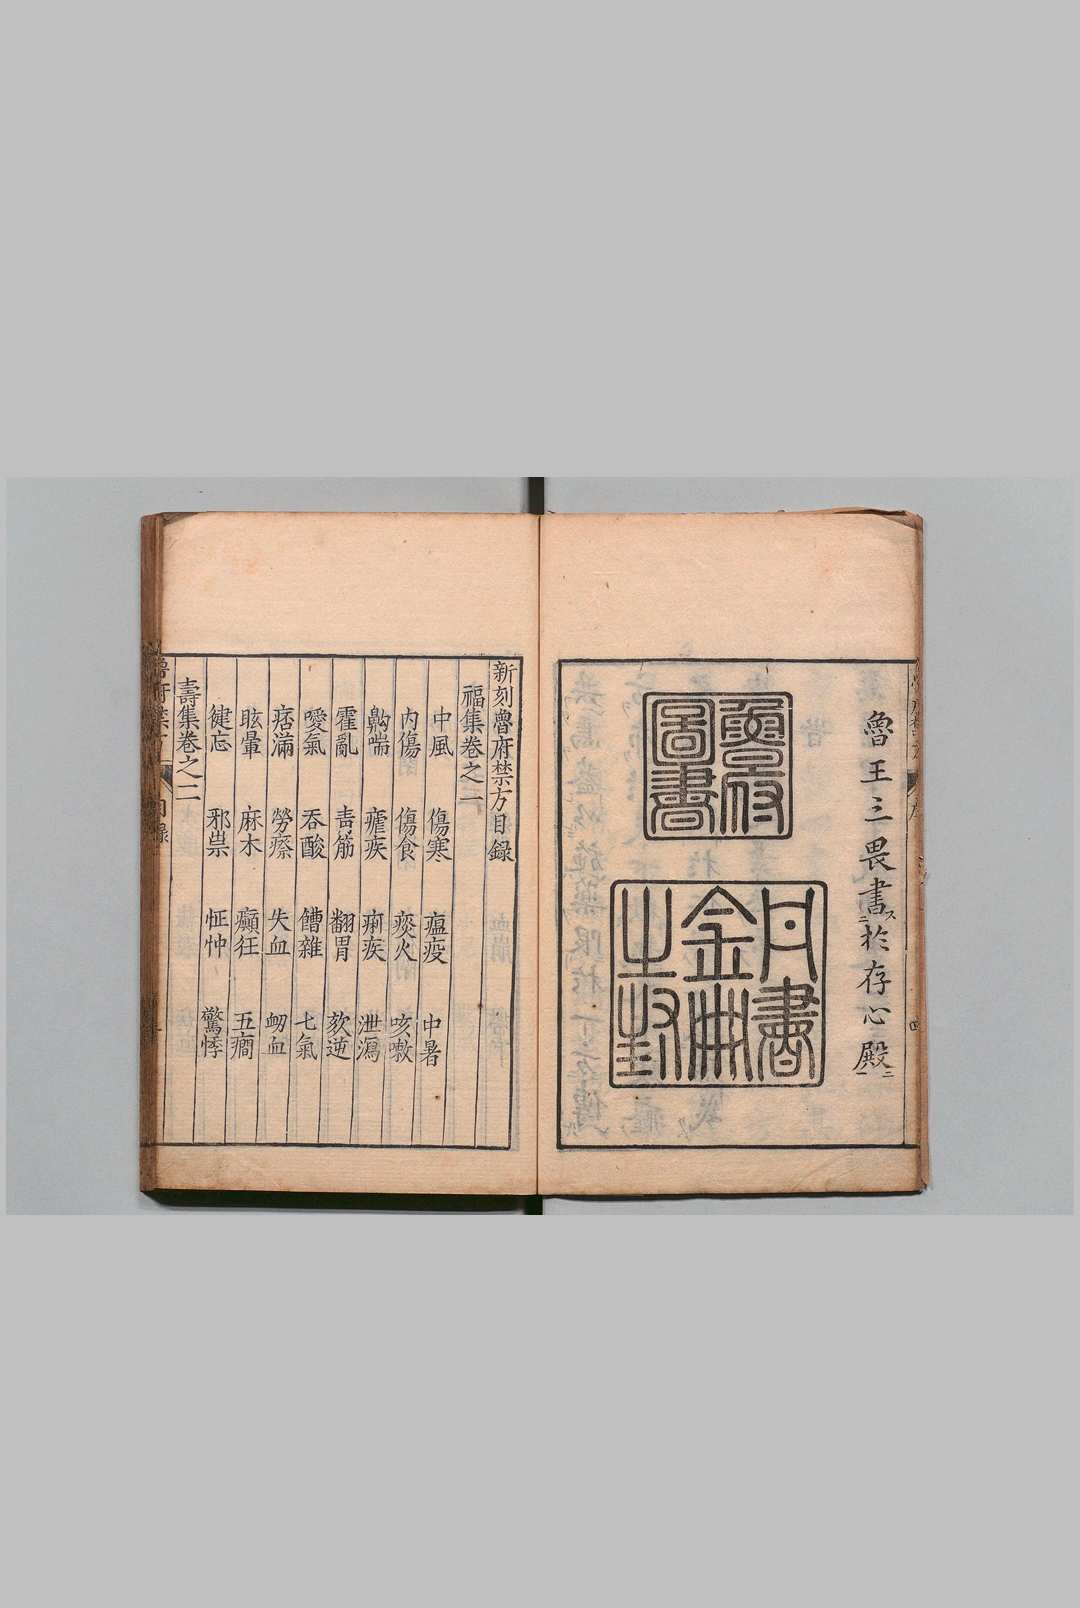 魯王三畏書於存心殿
魯府
圖書
丹書
金典
之封
新刻魯府禁方目録
福集卷之一
中風 傷寒 瘟疫 中暑
内傷 傷食 痰火 咳嗽
齁喘 瘧疾 痢疾 泄瀉
霍亂 青筋 翻胃 欬逆
噯氣 吞酸 饐雜 七氣
痞滿 勞瘵 失血 衂血
眩暈 麻木 癲狂 五癇
健忘 邪祟 怔忡 驚悸
壽集卷之二